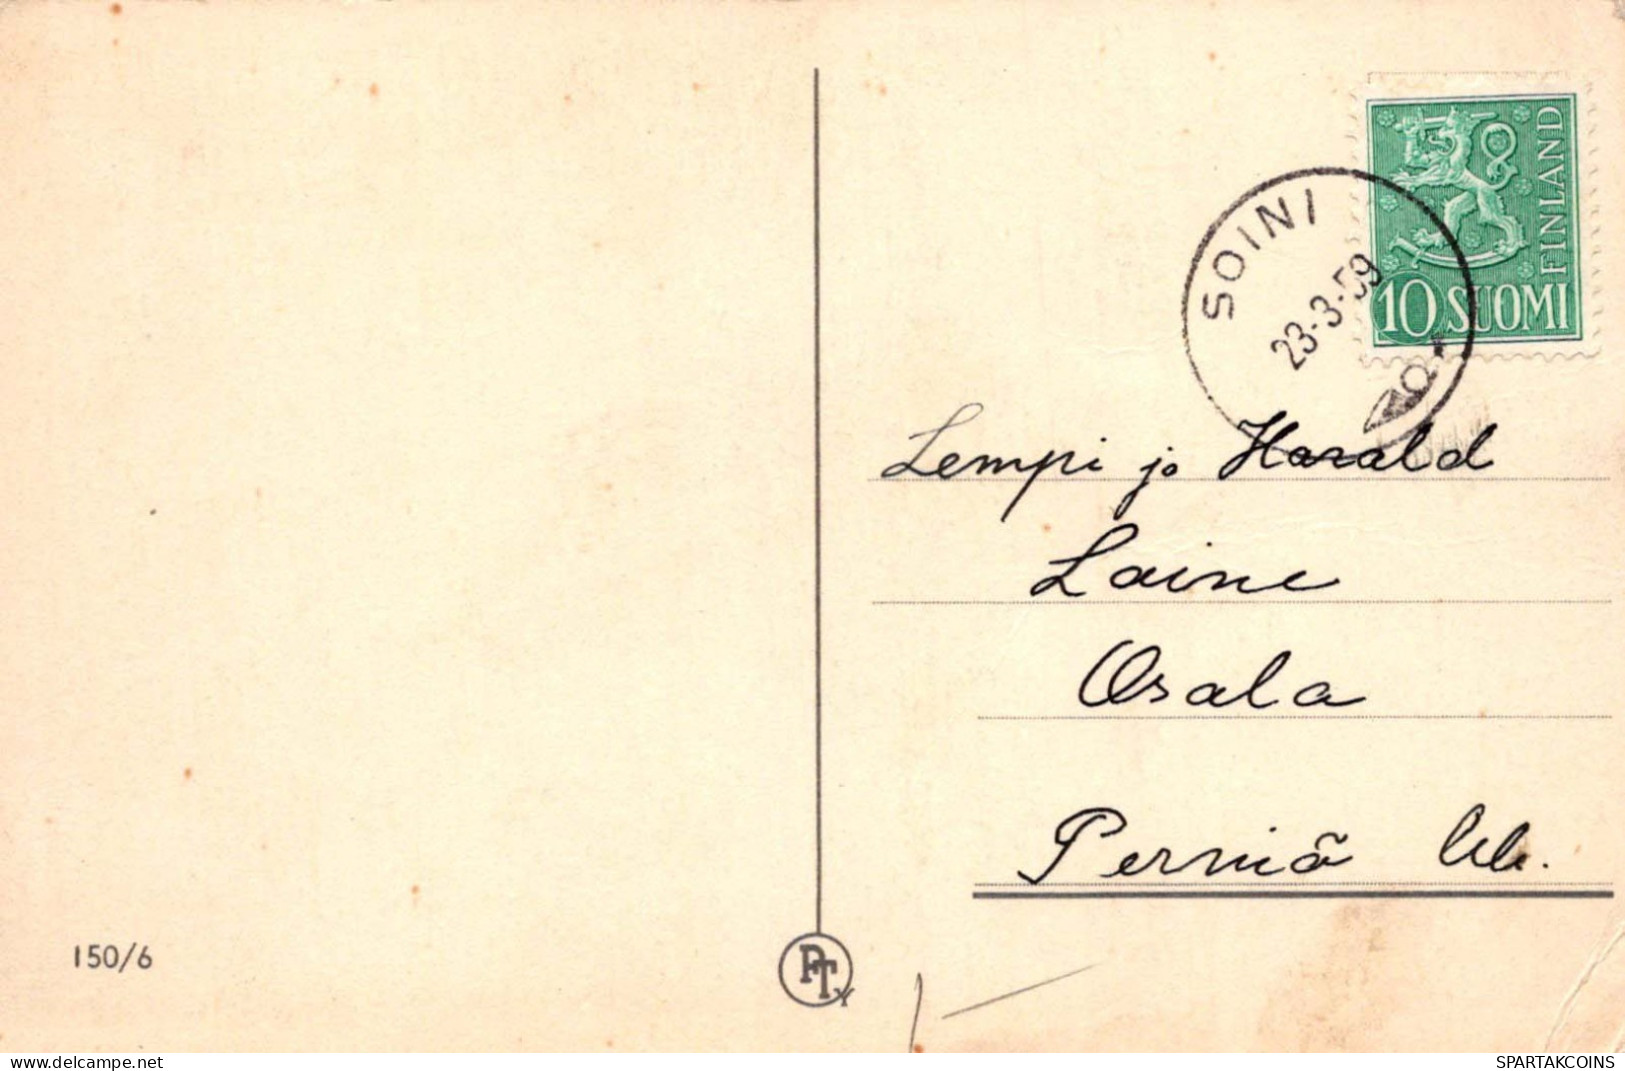 FINLAND
10 SUOMI
SOINI
23-3-59
Lempi ja Harald
Laine
Osala
Perniö
150/6
PTY
www.delcampe.net
SPARTAKCOINS